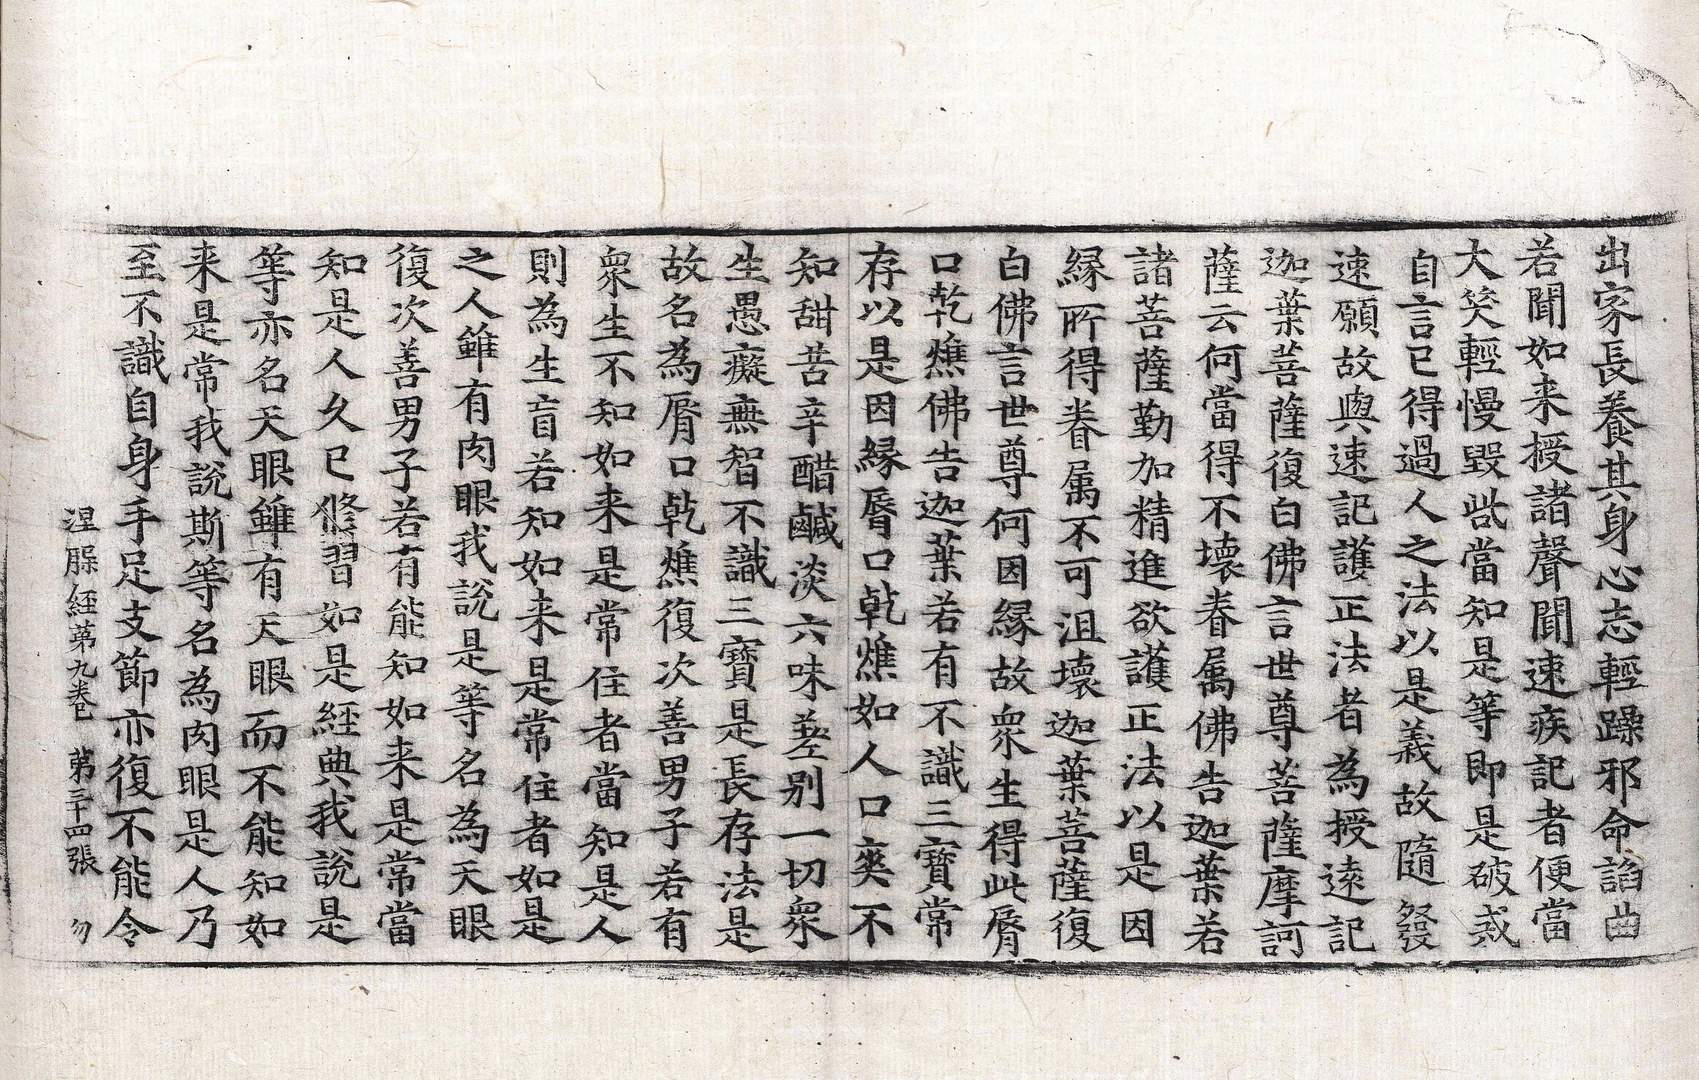 出家長養其身心志輕躁邪命諂曲
若聞如来授諸聲聞速疾記者便當
大笑輕慢毀呰當知是等即是破戒
自言已得過人之法以是義故隨發
速願故與速記護正法者為授遠記
迦葉菩薩復白佛言世尊菩薩摩訶
薩云何當得不壞眷属佛告迦葉若
諸菩薩勤加精進欲護正法以是因
縁所得眷属不可沮壞迦葉菩薩復
白佛言世尊何因縁故衆生得此脣
口乾燋佛告迦葉若有不識三寶常
存以是因縁脣口乾燋如人口爽不
知甜苦辛醋鹹淡六味差別一切衆
生愚癡無智不識三寶是長存法是
故名為脣口乾燋復次善男子若有
衆生不知如来是常住者當知是人
則為生盲若知如来是常住者如是
之人雖有肉眼我說是等名為天眼
復次善男子若有能知如来是常當
知是人久已修習如是經典我說是
等亦名天眼雖有天眼而不能知如
来是常我說斯等名為肉眼是人乃
至不識自身手足支節亦復不能令
涅槃經第九卷 第三十四張 勿